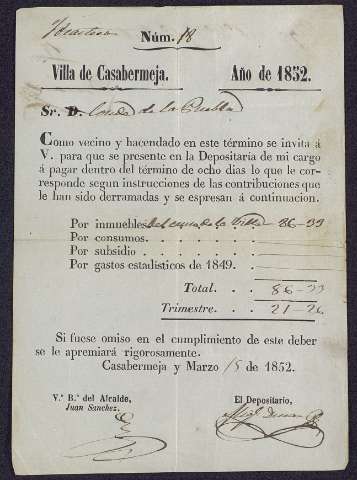 Núm. 18
Villa de Casabermeja. Año de 1852.
Sr. D. Conde de la Puebla
Como vecino y hacendado en este término se invita á
V. para que se presente en la Depositaría de mi cargo
á pagar dentro del término de ocho dias lo que le cor-
responde segun instrucciones de las contribuciones que
le han sido derramadas y se espresán á continuacion.
Por inmuebles de la Villa 86-33
Por consumos.
Por subsidio
Por gastos estadísticos de 1849.
Total. 86-33
Trimestre. 21-26
Si fuese omiso en el cumplimiento de este deber
se le apremiará rigorosamente.
Casabermeja y Marzo 15 de 1852.
V.º B.º del Alcalde,
Juan Sanchez.
El Depositario,